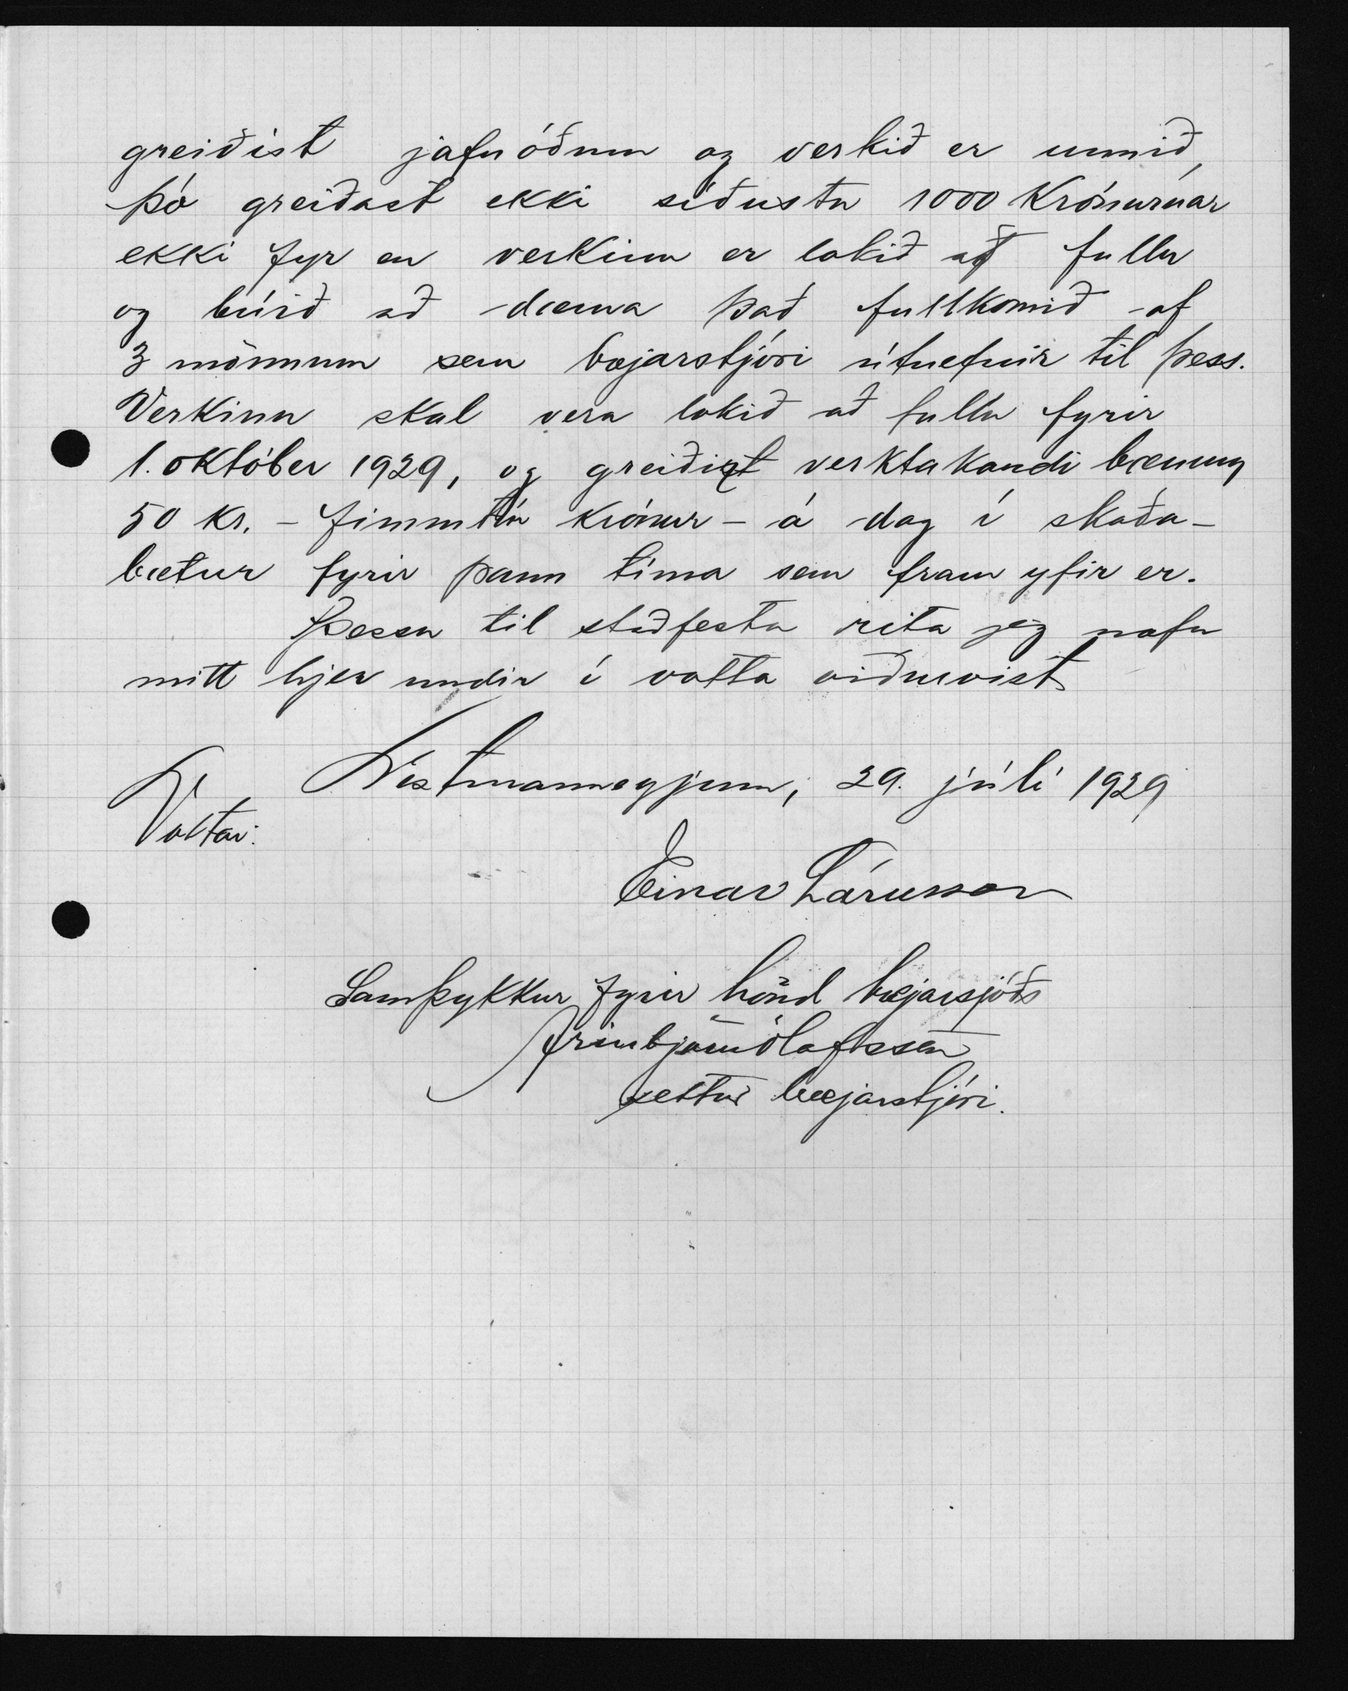 greiðist jafnóðum og verkið er unnið,
þó greiðast ekki síðustu 1000 Krónurnar
ekki fyr en verkinu er lokið að fullu
og búið að dæma það fullkomið af
3 mönnum sem bæjarstjóri útnefnir til þess.
Verkinu skal vera lokið að fullu fyrir
1. október 1929, og greiðist verktakandi bænum
50 kr. - fimmtíu krónur - á dag í skaða-
bætur fyrir þann tíma sem fram yfir er.
Þessu til staðfestu rita jeg nafn
mitt hjer undir í votta viðurvist
Vestmannaeyjum, 29. júlí 1929
Vottar:
Einar Lárusson
Samþykkur fyrir hönd bæjarsjóðs
Arinbjörn Ólafsson
settur bæjarstjóri.